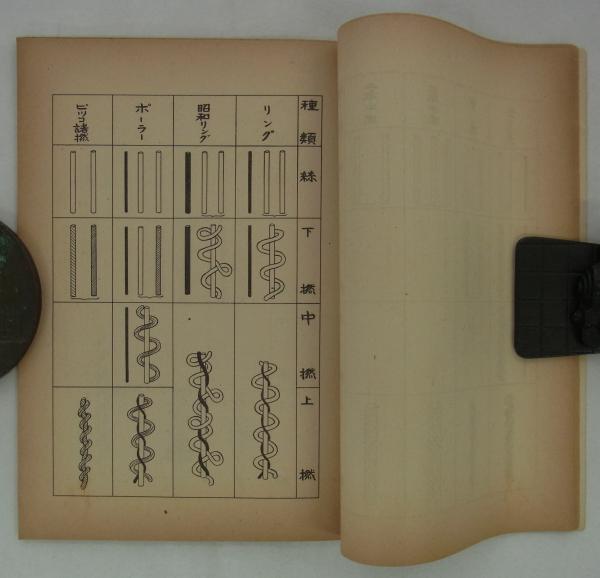 種類
絲
下撚
中撚
上撚
リング
昭和リング
ポーラー
ピッコ諸撚